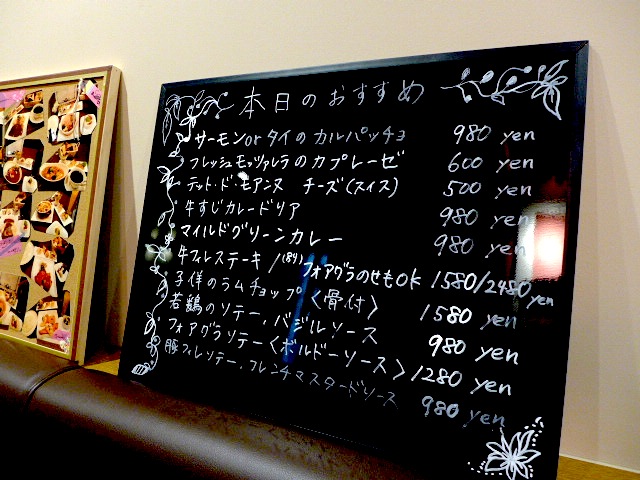 本日のおすすめ
サーモンorタイのカルパッチョ 980 yen
フレッシュモッツァレラのカプレーゼ 600 yen
テット・ド・モアンヌ チーズ(スイス) 500 yen
牛すじカレードリア 980 yen
マイルドグリーンカレー 980 yen
牛フィレステーキ / フォアグラのせもOK 1580/2480yen
子羊のラムチョップ〈骨付〉 1580 yen
若鶏のソテー、バジルソース 980 yen
フォアグラソテー〈ボルドーソース〉 1280 yen
豚フィレソテー、フレンチマスタードソース 980 yen